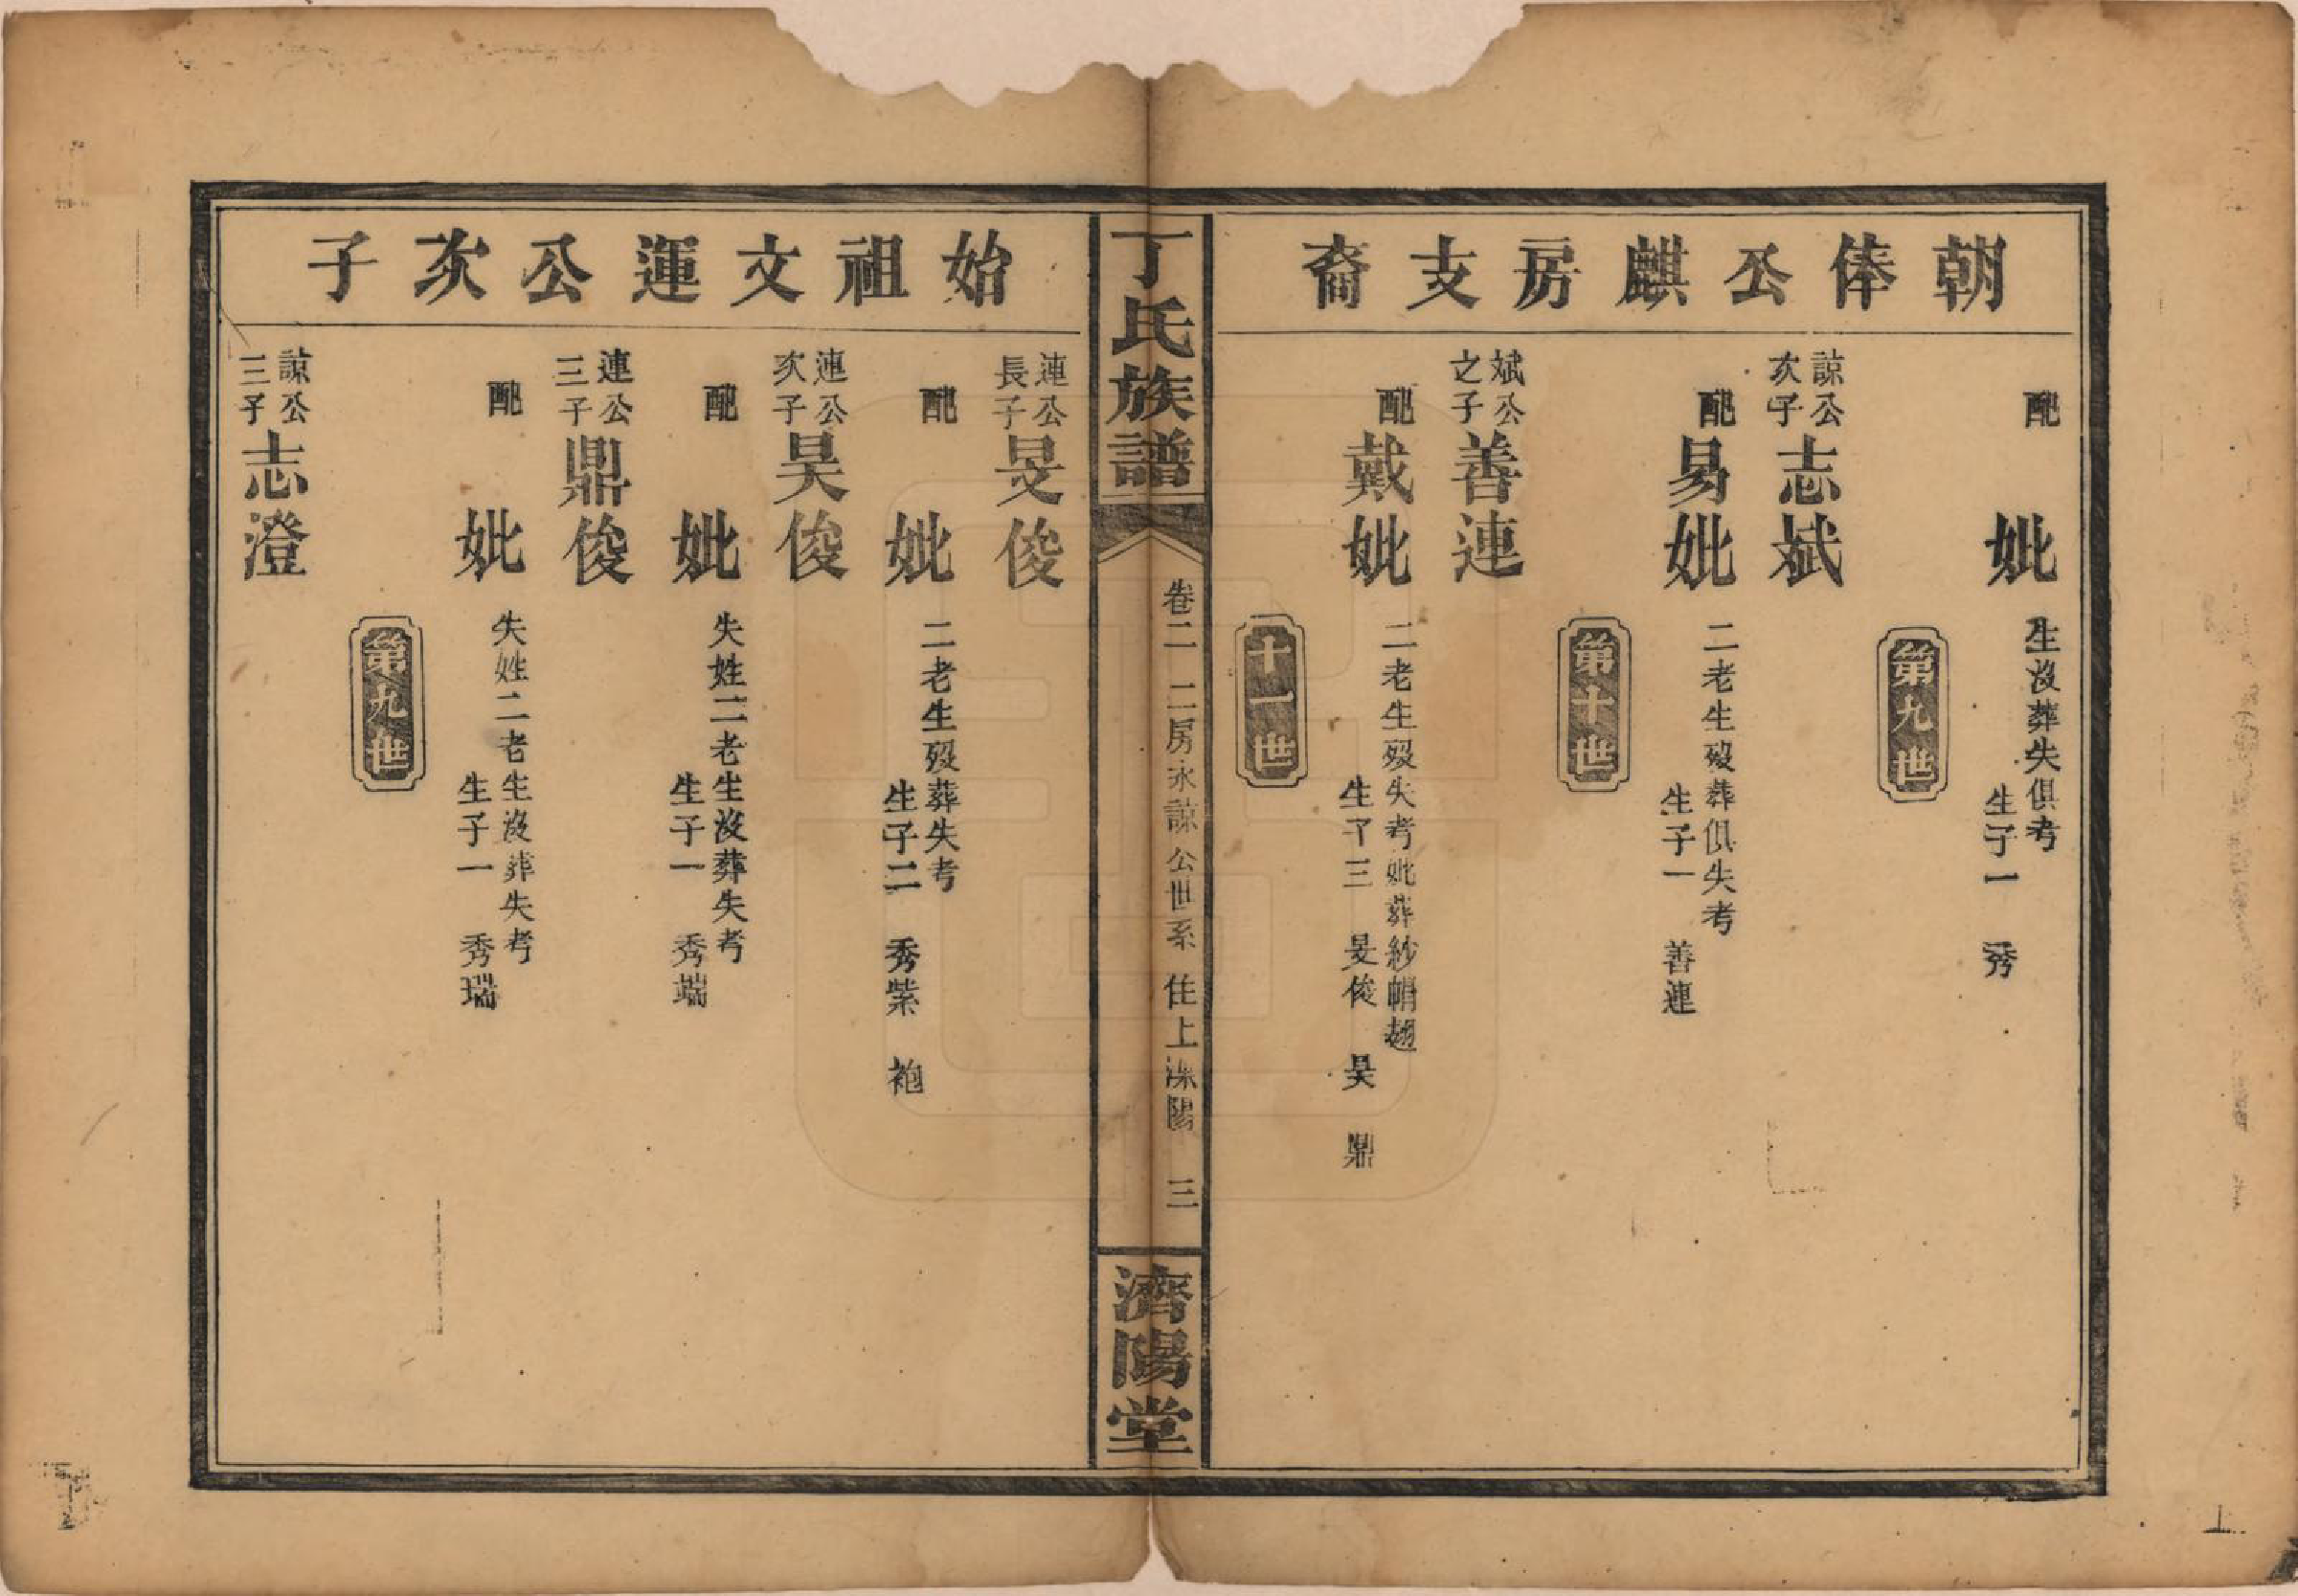 朝俸公麒房支裔
配
妣
生沒葬失俱考
生子一 秀
第九世
諒公
次子
志斌
配
易妣
二老生歿葬俱失考
生子一 善連
第十世
斌公
之子
善連
配
戴妣
二老生歿失考妣葬紗帽翅
生子三 旻俊 昊 鼎
十一世
丁氏族譜
卷二 二房永諒公世系 住上洣陽 三
濟陽堂
始祖文運公次子
連公
長子
旻俊
配
妣
二老生歿葬失考
生子二 秀紫 袍
連公
次子
昊俊
配
妣
失姓二老生沒葬失考
生子一 秀端
連公
三子
鼎俊
配
妣
失姓二老生沒葬失考
生子一 秀瑞
第九世
諒公
三子
志澄